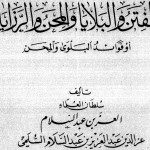 الفتن والبلايا والمحن والرزايا
أو فوائد البلوى والمحن
تأليف
سلطان العلماء
العز بن عبد السلام
عز الدين عبد العزيز بن عبد السلام السلمي